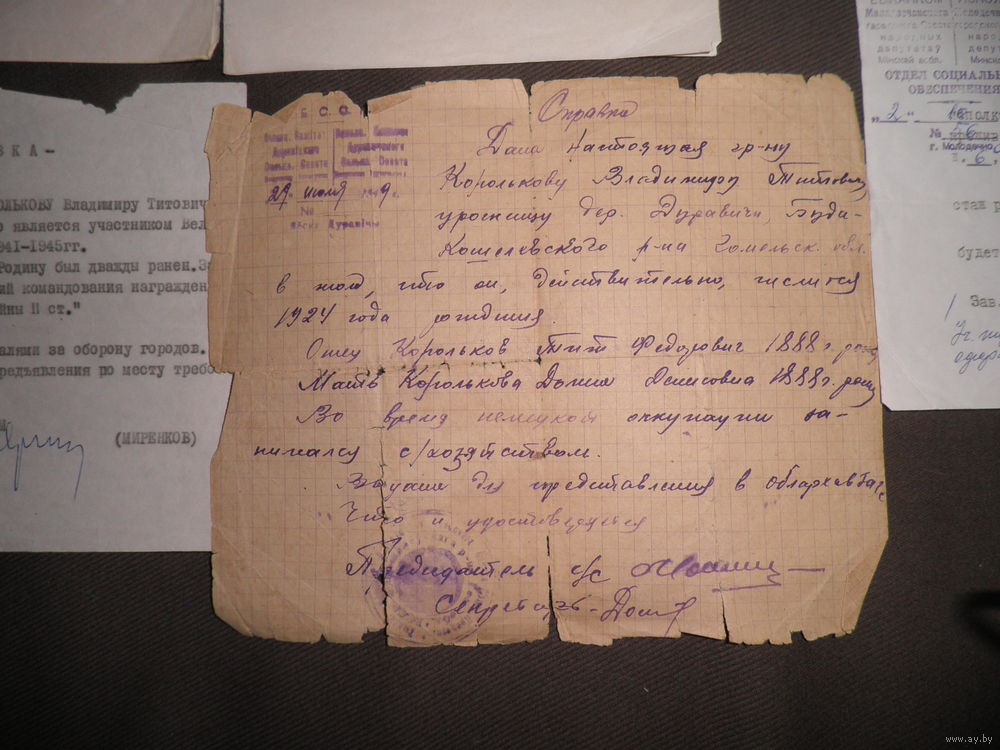 ВКА -
ОЛЬКОВУ Владимиру Титович
о является участником Вел
941-1945гг.
Родину был дважды ранен.
ий командования награжден
йны II ст."
алями за оборону городов.
редъявления по месту требо
(МИРЕНКОВ)
Б С. С.
29 июля 1949 г.
№
Справка
Дана настоящая гр-ну
Королькову Владимиру Титовичу
урожнцу дер. Дуравичи, Буда-
Кошелевского р-на Гомельск. обл.
в том, что он, действительно, числится
1924 года рождения.
Отец Корольков Тит Федорович 1888 г. рожд
Мать Королькова Дания Денисовна 1888 г. рожд
Во время немецкой оккупации за-
нимался с/хозяйством.
Выдана для представления в
Что и удостоверяется
Председатель с/с
Секретарь -
народных
дэпутатаў
Мінскай вобл.
ОТДЕЛ СОЦИАЛЬ
ОБЕСПЕЧЕНИЯ
„2"
№ 26
г. Молодечно
стан р
будет
/ Зав.
www.ay.by